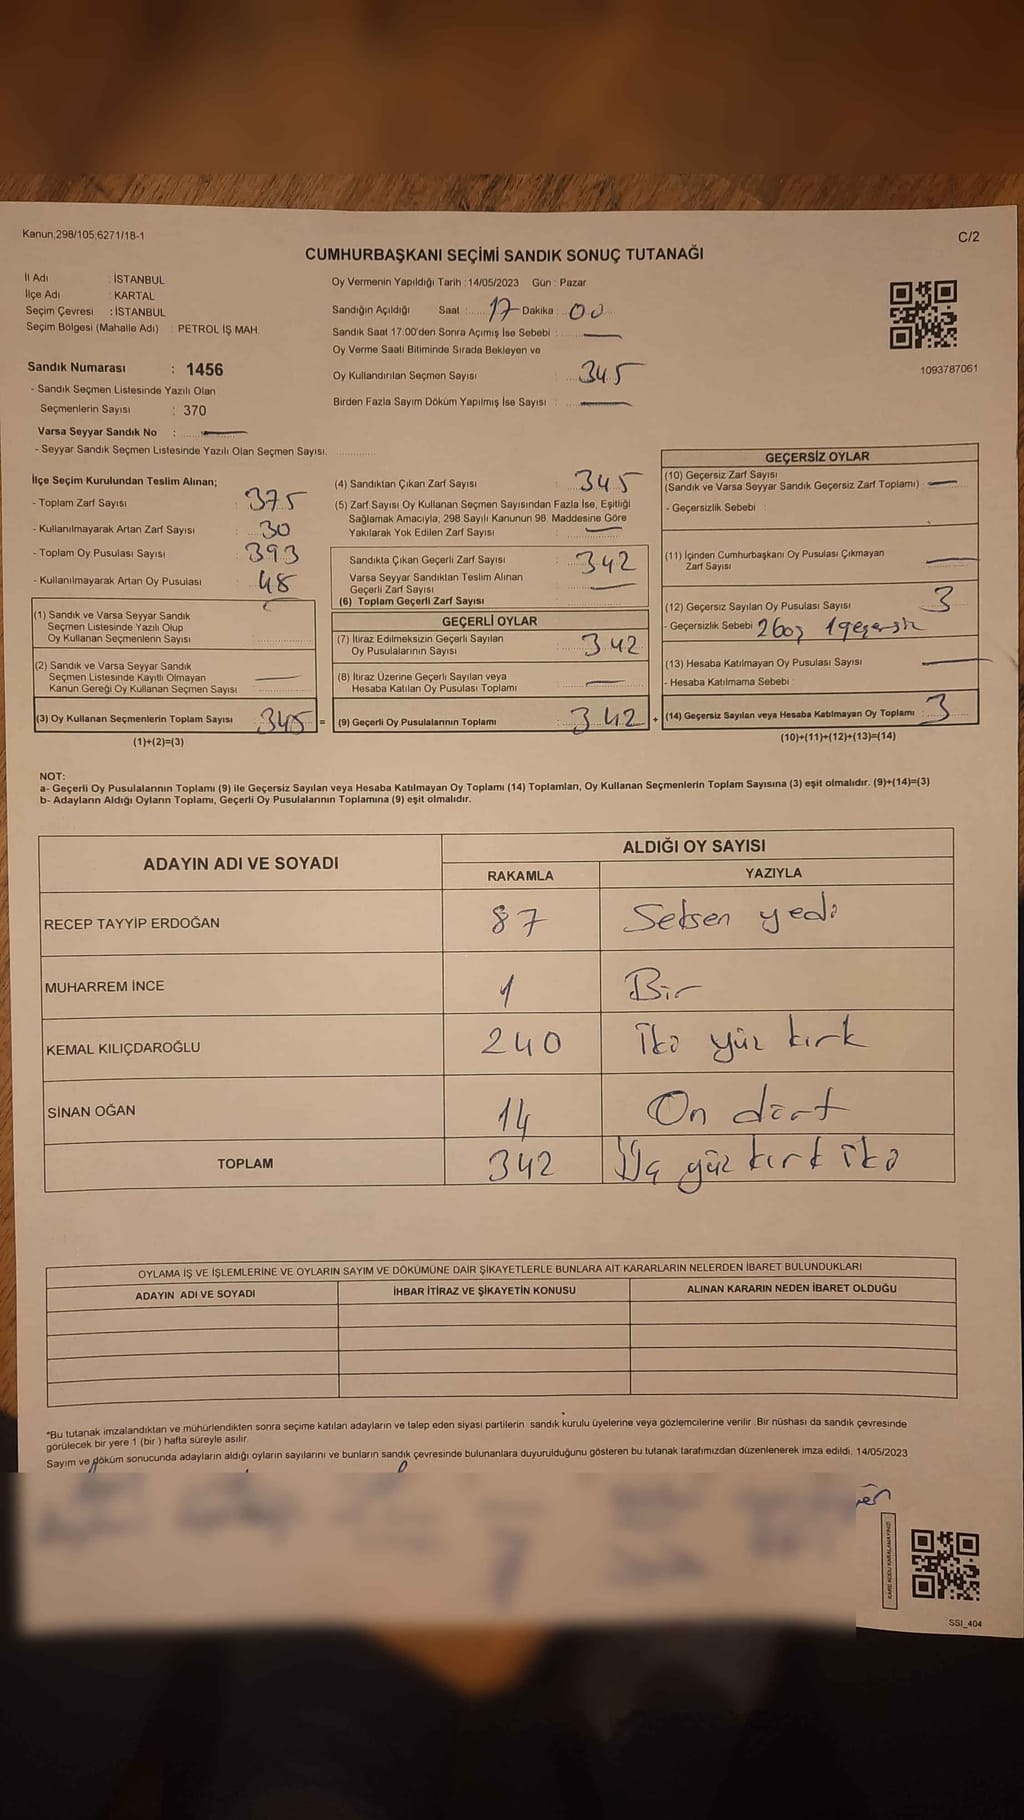 Kanun;298/105;6271/18-1
C/2
CUMHURBAŞKANI SEÇİMİ SANDIK SONUÇ TUTANAĞI
İl Adı : İSTANBUL
İlçe Adı : KARTAL
Seçim Çevresi : İSTANBUL
Seçim Bölgesi (Mahalle Adı) : PETROL İŞ MAH.
Sandık Numarası : 1456
- Sandık Seçmen Listesinde Yazılı Olan
Seçmenlerin Sayısı : 370
Varsa Seyyar Sandık No :
- Seyyar Sandık Seçmen Listesinde Yazılı Olan Seçmen Sayısı.
Oy Vermenin Yapıldığı Tarih : 14/05/2023 Gün : Pazar
Sandığın Açıldığı Saat : 17 Dakika : 00
Sandık Saat 17:00'den Sonra Açımış İse Sebebi :
Oy Verme Saati Bitiminde Sırada Bekleyen ve
Oy Kullandırılan Seçmen Sayısı : 345
Birden Fazla Sayım Döküm Yapılmış İse Sayısı :
1093787061
İlçe Seçim Kurulundan Teslim Alınan;
- Toplam Zarf Sayısı : 375
- Kullanılmayarak Artan Zarf Sayısı : 30
- Toplam Oy Pusulası Sayısı : 393
- Kullanılmayarak Artan Oy Pusulası : 48
(1) Sandık ve Varsa Seyyar Sandık
Seçmen Listesinde Yazılı Olup
Oy Kullanan Seçmenlenn Sayısı :
(2) Sandık ve Varsa Seyyar Sandık
Seçmen Listesinde Kayıtlı Olmayan
Kanun Gereği Oy Kullanan Seçmen Sayısı :
(3) Oy Kullanan Seçmenlerin Toplam Sayısı : 345 =
(1)+(2)=(3)
(4) Sandıktan Çıkan Zarf Sayısı : 345
(5) Zarf Sayısı Oy Kullanan Seçmen Sayısından Fazla İse, Eşitliği
Sağlamak Amacıyla, 298 Sayılı Kanunun 98. Maddesine Göre
Yakılarak Yok Edilen Zarf Sayısı :
Sandıkta Çıkan Geçerli Zarf Sayısı : 342
Varsa Seyyar Sandıktan Teslim Alınan
Geçerli Zarf Sayısı :
(6) Toplam Geçerli Zarf Sayısı :
GEÇERLİ OYLAR
(7) İtiraz Edilmeksizin Geçerli Sayılan
Oy Pusulalarının Sayısı : 342
(8) İtiraz Üzerine Geçerli Sayılan veya
Hesaba Katılan Oy Pusulası Toplamı :
(9) Geçerli Oy Pusulalarının Toplamı : 342 +
GEÇERSİZ OYLAR
(10) Geçersiz Zarf Sayısı
(Sandık ve Varsa Seyyar Sandık Geçersiz Zarf Toplamı) :
- Geçersizlik Sebebi :
(11) İçinden Cumhurbaşkanı Oy Pusulası Çıkmayan
Zarf Sayısı :
(12) Geçersiz Sayılan Oy Pusulası Sayısı : 3
- Geçersizlik Sebebi 2 boş 1 geçersiz
(13) Hesaba Katılmayan Oy Pusulası Sayısı :
- Hesaba Katılmama Sebebi :
(14) Geçersiz Sayılan veya Hesaba Katılmayan Oy Toplamı : 3
(10)+(11)+(12)+(13)=(14)
NOT:
a- Geçerli Oy Pusulalarının Toplamı (9) ile Geçersiz Sayılan veya Hesaba Katılmayan Oy Toplamı (14) Toplamları, Oy Kullanan Seçmenlerin Toplam Sayısına (3) eşit olmalıdır. (9)+(14)=(3)
b- Adayların Aldığı Oyların Toplamı, Geçerli Oy Pusulalarının Toplamına (9) eşit olmalıdır.
ADAYIN ADI VE SOYADI
ALDIĞI OY SAYISI
RAKAMLA YAZIYLA
RECEP TAYYİP ERDOĞAN 87 Seksen yedi
MUHARREM İNCE 1 Bir
KEMAL KILIÇDAROĞLU 240 İki yüz kırk
SİNAN OĞAN 14 On dört
TOPLAM 342 Üç yüz kırk iki
OYLAMA İŞ VE İŞLEMLERİNE VE OYLARIN SAYIM VE DÖKÜMÜNE DAİR ŞİKAYETLERLE BUNLARA AİT KARARLARIN NELERDEN İBARET BULUNDUKLARI
ADAYIN ADI VE SOYADI İHBAR İTİRAZ VE ŞİKAYETİN KONUSU ALINAN KARARIN NEDEN İBARET OLDUĞU
*Bu tutanak imzalandıktan ve mühürlendikten sonra seçime katılan adayların ve talep eden siyasi partilerin sandık kurulu üyelerine veya gözlemcilerine verilir .Bir nüshası da sandık çevresinde
görülecek bir yere 1 (bir ) hafta süreyle asılır.
Sayım ve döküm sonucunda adayların aldığı oyların sayılarını ve bunların sandık çevresinde bulunanlara duyurulduğunu gösteren bu tutanak tarafımızdan düzenlenerek imza edildi. 14/05/2023
KARE KODU KARALAMAYINIZ!
SSI_404